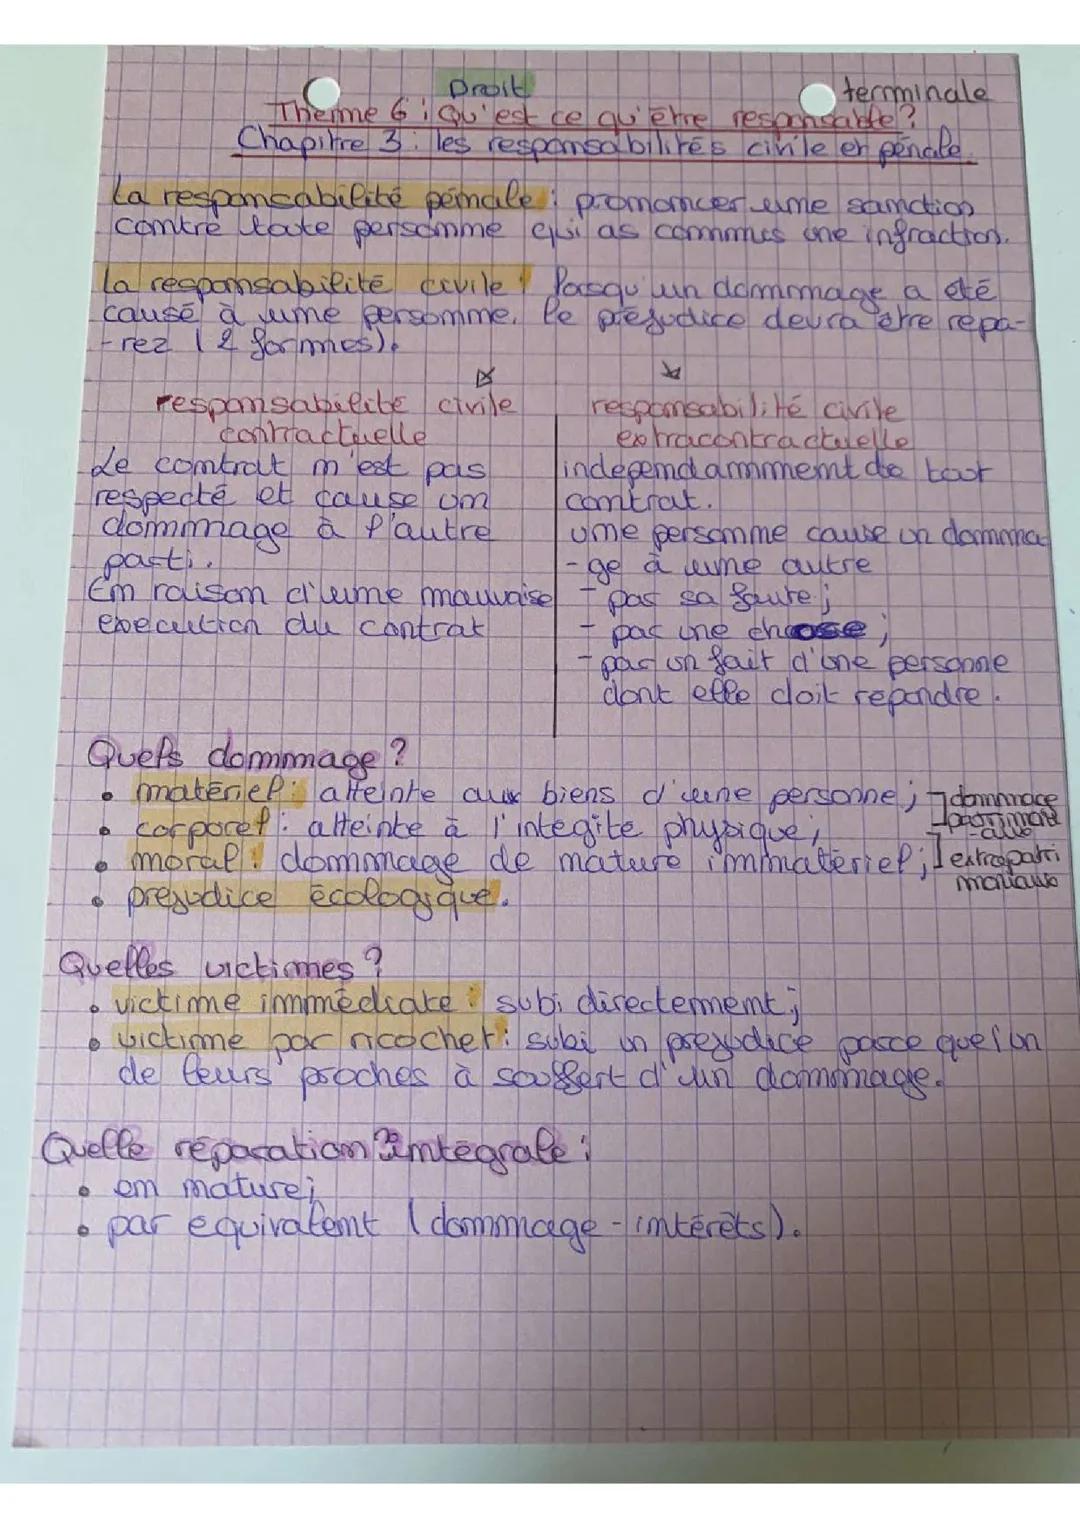 Droit
terminale
Theme 6 : Qu'est ce qu'être responsable ?
Chapitre 3 : les responsabilités civile et pénale.
La responsabilité pénale : prononcer une sanction
contre toute personne qui as commis une infraction.
La responsabilité civile : lorsqu'un dommage a été
causé à une personne. le préjudice devra être répa-
-rez (2 formes).
responsabilité civile
contractuelle
Le contrat n'est pas
respecté et cause un
dommage à l'autre
parti.
En raison d'une mauvaise
execution du contrat
responsabilité civile
extracontractuelle
independamment de tout
contrat.
une personne cause un domma
-ge à une autre
- par sa faute ;
- par une chose ;
- par un fait d'une personne
dont elle doit repondre.
Quels dommage ?
• matériel : atteinte aux biens d'une personne ;
• corporel : atteinte à l'intégité physique ;
dommage
patrimoni
-aux
• moral : dommage de nature immatériel ;
extrapatri
moniaux
• préjudice écologique.
Quelles victimes ?
• victime immédiate : subi directement ;
• victime par ricochet : subi un prejudice parce que l'un
de leurs proches à souffert d'un dommage.
Quelle réparation ? intégrale :
• en nature ;
• par equivalent (dommage - intérêts).